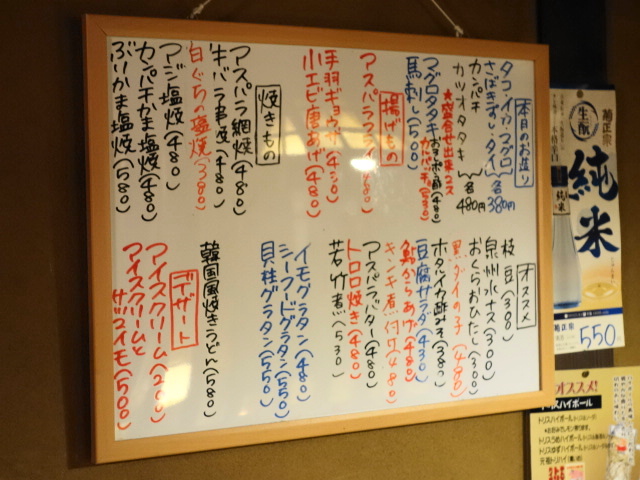 本日のお造り
タコ・イカ・マグロ 各380円
さばきずし・タイ
カンパチ 各480円
カツオタタキ
★盛合せ出来マス
マグロタタキ
馬刺し(500)
揚げもの
アスパラフライ(480)
手羽ギョウザ(430)
小エビ唐あげ(480)
焼きもの
アスパラ網焼(480)
牛バラ串焼(480)
白ぐちの塩焼(380)
アジ塩焼(480)
カンパチかま塩焼(480)
ぶりかま塩焼(580)
オススメ
枝豆(300)
泉州水ナス(300)
おくらおひたし(300)
黒ダイの子(480)
ホタルイカ酢みそ(380)
豆腐サラダ(430)
鮎からあげ(480)
キンキ煮付け(480)
アスパラバター(480)
トロロ焼き(480)
若竹煮(530)
イモグラタン(480)
シーフードグラタン(550)
貝柱グラタン(550)
韓国風焼きうどん(580)
デザート
アイスクリーム(200)
アイスクリームと
サツマイモ(500)
菊正宗
生酛
純米
菊正宗
550円
オススメ!
トリスハイボール